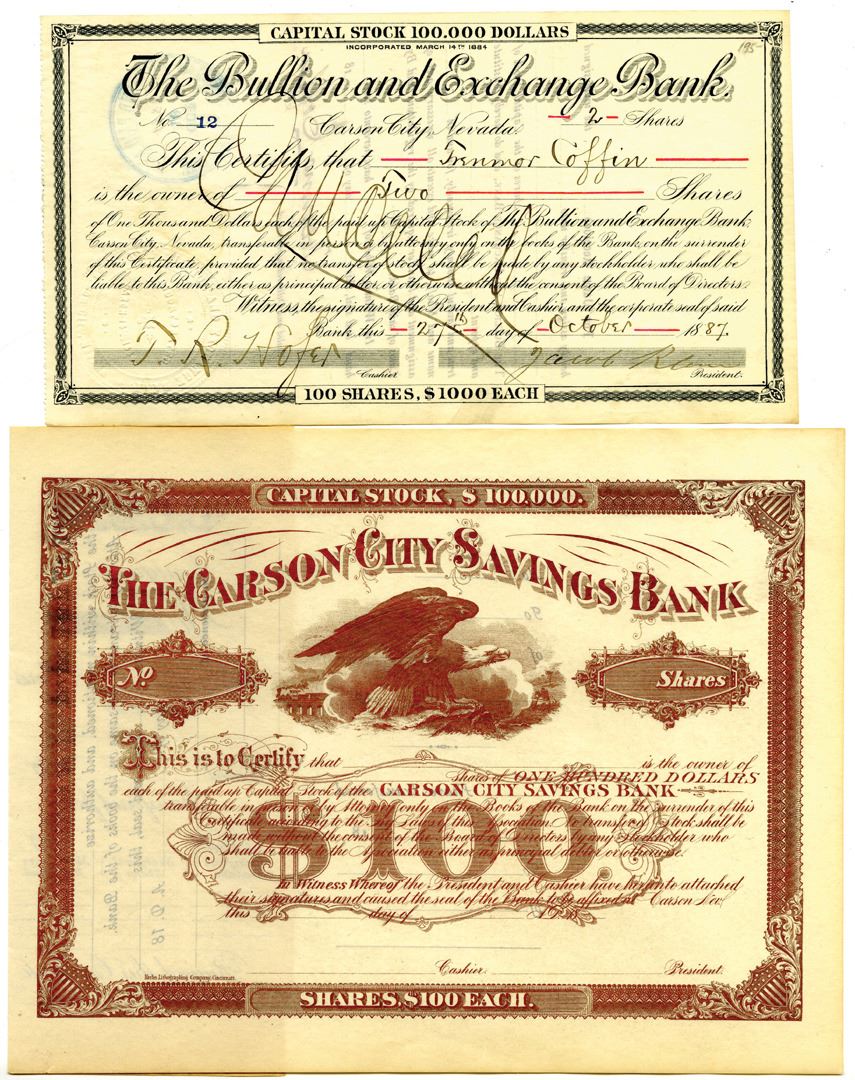 CAPITAL STOCK 100.000 DOLLARS
INCORPORATED MARCH 14TH 1884
195-
The Bullion and Exchange Bank.
No 12 Carson City, Nevada. - 2 - Shares
This Certifies, that Trenmor Coffin
is the owner of Two Shares
of One Thousand Dollars each of the paid up Capital Stock of The Bullion and Exchange Bank,
Carson City, Nevada, transferable in person or by attorney only on the books of the Bank, on the surrender
of this Certificate, provided that no transfer of stock shall be made by any stockholder, who shall be
liable to this Bank, either as principal debtor, or otherwise without the consent of the Board of Directors.
Witness, the signature of the President and Cashier and the corporate seal of said
Bank this - 27th day of October 1887.
T. R. Hofer Jacob Klein
Cashier President.
Cancelled
100 SHARES, $1000 EACH
CAPITAL STOCK, $100,000.
THE CARSON CITY SAVINGS BANK
No Shares
This is to Certify that is the owner of
shares of ONE HUNDRED DOLLARS
each of the paid up Capital Stock of the CARSON CITY SAVINGS BANK
transferable in person or by Attorney only on the Books of the Bank on the surrender of this
Certificate according to the By Laws of this Association. No transfer of Stock shall be
made without the consent of the Board of Directors by any Stockholder who
shall be liable to the Association either as principal debtor or otherwise.
$100.
In Witness Whereof the President and Cashier have hereunto attached
their signatures and caused the seal of the Bank to be affixed at Carson Nev.
this day of A.D. 18
Cashier. President.
Krebs Lithographing Company, Cincinnati.
SHARES, $100 EACH.